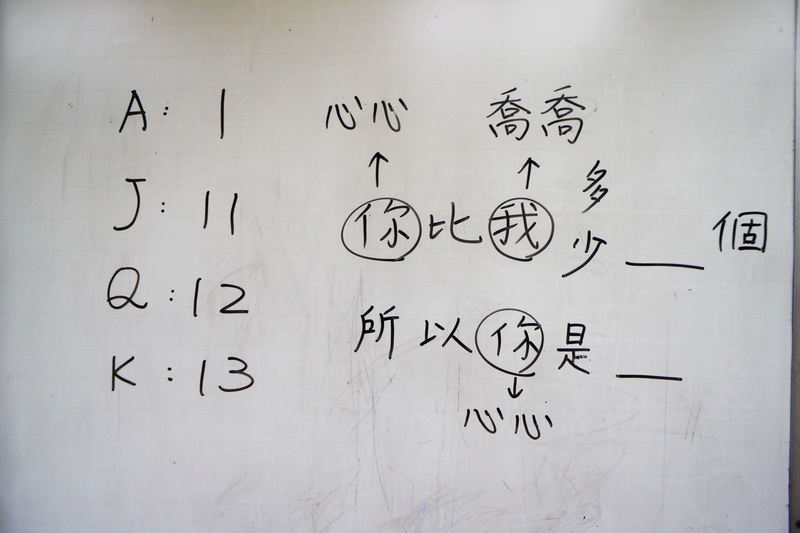 A: 1
J: 11
Q: 12
K: 13
心心 喬喬
↑ ↑
你比我多少__個
所以你是__
↓
心心